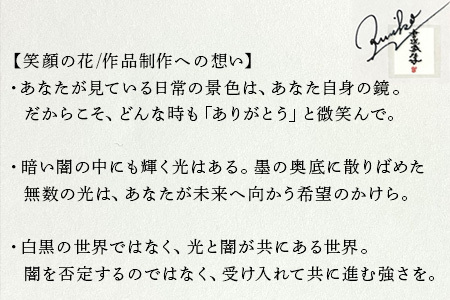 【笑顔の花/作品制作への想い】
・あなたが見ている日常の景色は、あなた自身の鏡。
だからこそ、どんな時も「ありがとう」と微笑んで。
・暗い闇の中にも輝く光はある。墨の奥底に散りばめた
無数の光は、あなたが未来へ向かう希望のかけら。
・白黒の世界ではなく、光と闇が共にある世界。
闇を否定するのではなく、受け入れて共に進む強さを。